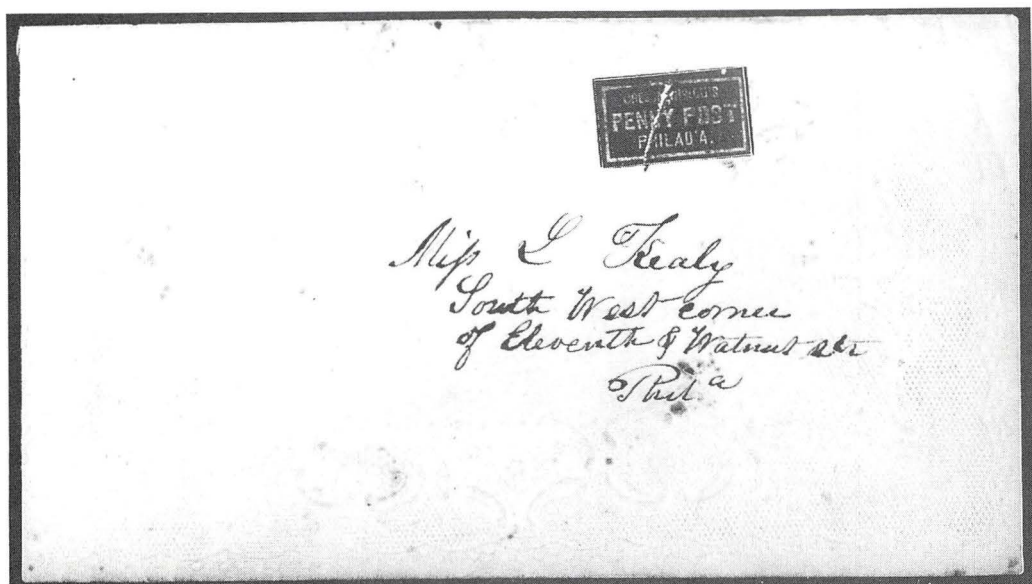 PENNY POST
PHILAD'A.
Miss L Kealy
South West corner
of Eleventh & Walnut sts
Phil a